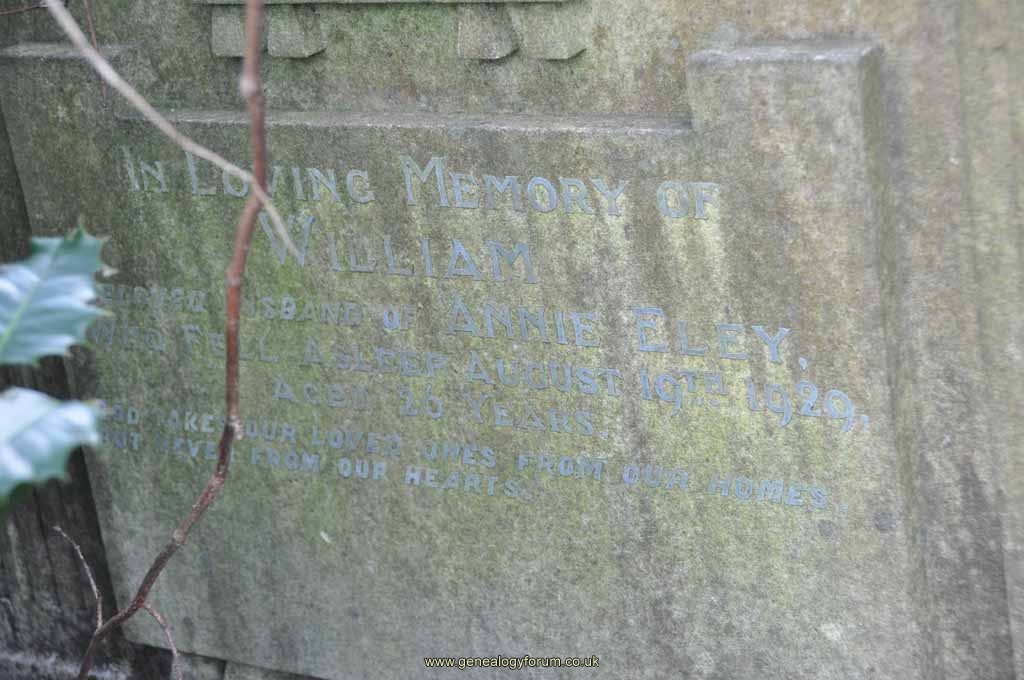 In Loving Memory of
William
Beloved Husband of Annie Eley,
Who Fell Asleep August 19th 1929,
Aged 26 Years.
God takes our loved ones from our homes,
But never from our hearts.
www.genealogyforum.co.uk